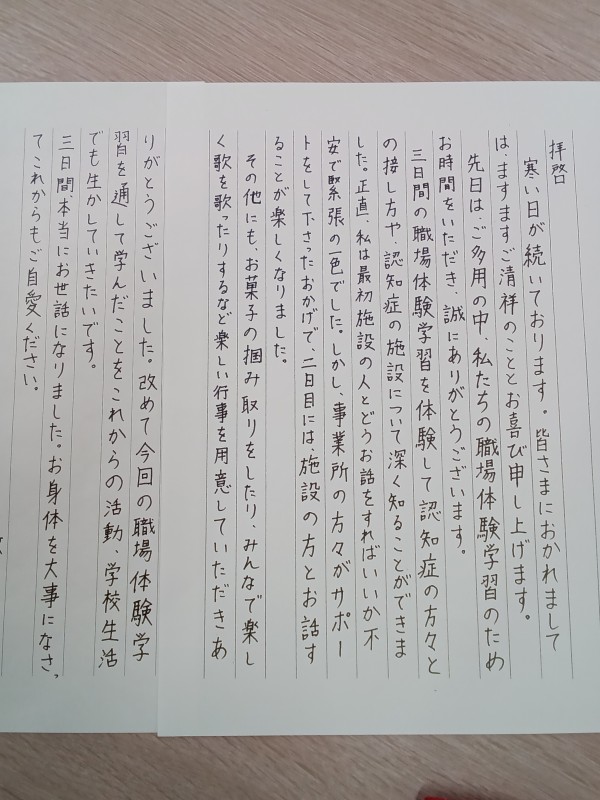 拝啓
寒い日が続いております。皆さまにおかれまして
は、ますますご清祥のこととお喜び申し上げます。
先日は、ご多用の中、私たちの職場体験学習のため
お時間をいただき、誠にありがとうございます。
三日間の職場体験学習を体験して認知症の方々と
の接し方や、認知症の施設について深く知ることができま
した。正直、私は最初施設の人とどうお話をすればいいか不
安で緊張の一色でした。しかし、事業所の方々がサポー
トをして下さったおかげで、二日目には、施設の方とお話す
ることが楽しくなりました。
その他にも、お菓子の掴み取りをしたり、みんなで楽し
く歌を歌ったりするなど楽しい行事を用意していただきあ
りがとうございました。改めて今回の職場体験学
習を通して学んだことをこれからの活動、学校生活
でも生かしていきたいです。
三日間、本当にお世話になりました。お身体を大事になさっ
てこれからもご自愛ください。